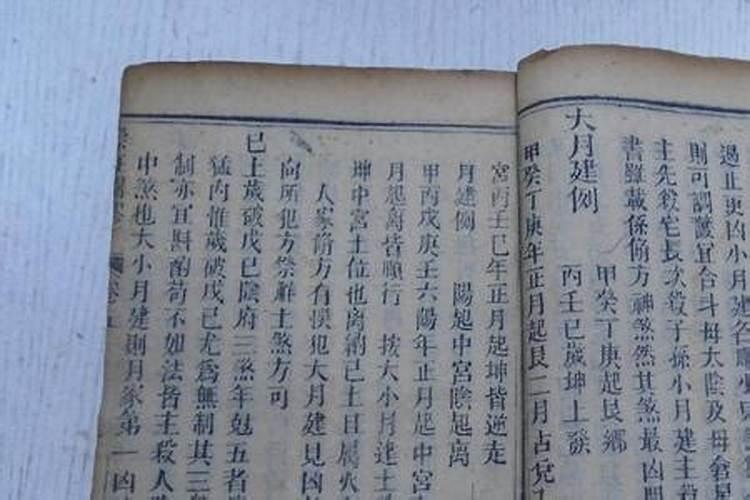 過止更凶小月建名
則可調議宜合斗母太陰及母倉星
主先殺宅長次殺子孫小月建主殺
書雖載係脩方神煞然其煞最凶
大月建例
甲癸丁庚起艮鄉
丙壬巳歲坤上發
甲癸丁庚年正月起艮二月占兌
宮丙壬巳年正月起坤皆逆走
月建例 陽起中宮陰起离
甲丙戊庚壬六陽年正月起中宮
月起离皆順行 按大小月建土
坤中宮土位也离納己土且屬火
人家脩方有悮犯大月建見凶
向所犯方祭解土煞方可
巳上歲破戊巳陰府三煞年尅五者
猛内惟歲破戊己尤為無制其三
制亦宜斟酌苟不如法皆主殺人
中煞也大小月建則月家第一凶